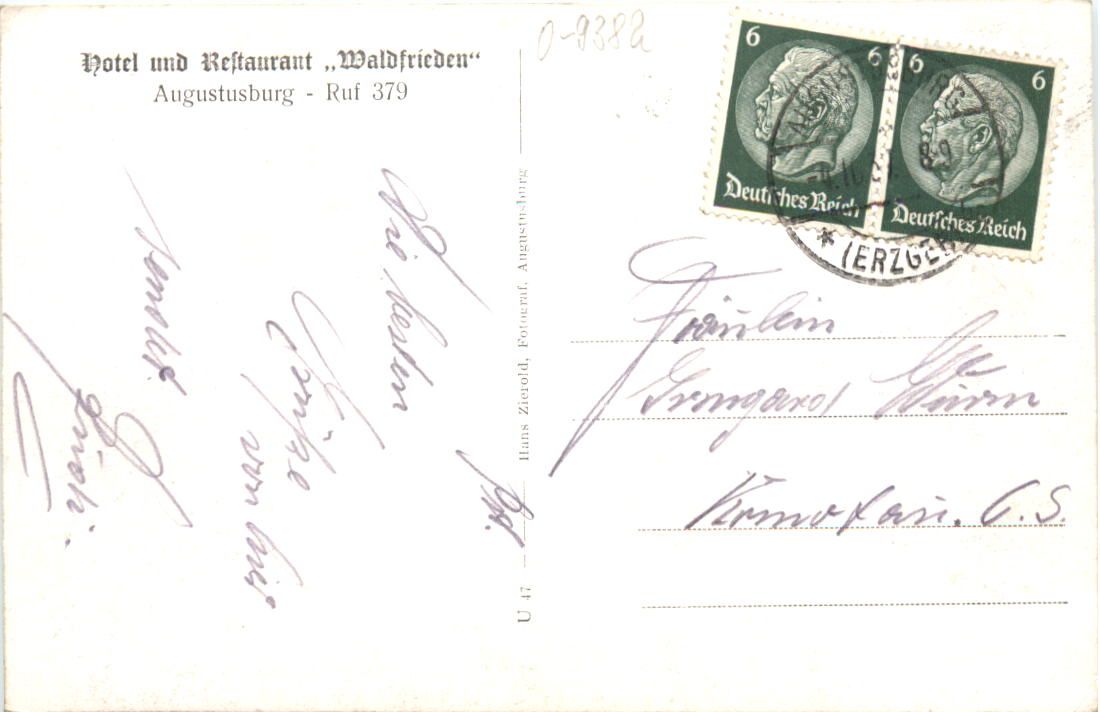 Hotel und Restaurant „Waldfrieden“
Augustusburg - Ruf 379
O-9382
6 6
Deutsches Reich
6 6
Deutsches Reich
AUGUSTUSBURG
8-9
* (ERZGEB
Die besten
Grüße
von hier
sendet
Hans Zierold, Fotograf, Augustusburg
U 47
Fräulein
Irmgard
Komotau. C.S.